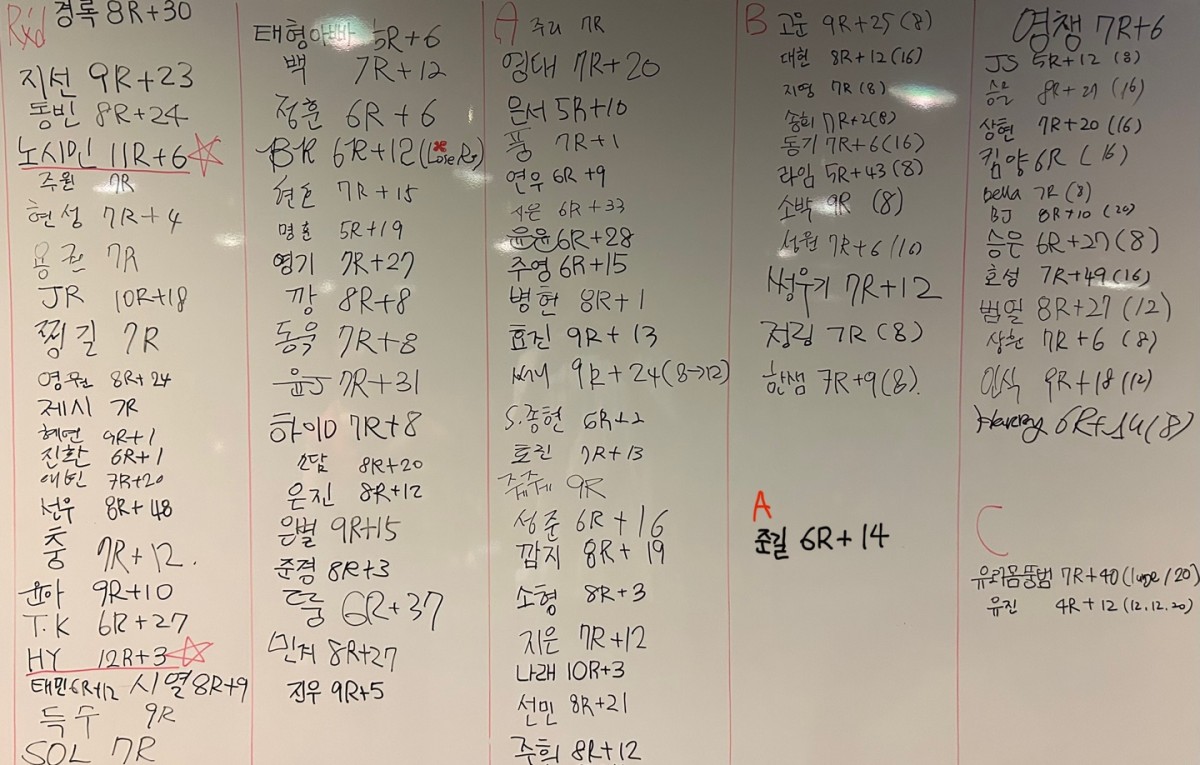 Rx'd
경록 8R+30
지선 9R+23
동빈 8R+24
노시민 11R+6
주원 7R
현성 7R+4
용권 7R
JR 10R+18
찡길 7R
영원 8R+24
제시 7R
혜연 9R+1
진환 6R+1
애빈 7R+20
선우 8R+48
충 7R+12.
윤아 9R+10
T.K 6R+27
HY 12R+3
태민 6R+12 시열 8R+9
득수 9R
SOL 7R
태형아빠 5R+6
백 7R+12
정훈 6R+6
BR 6R+12 (Lose Rx)
현호 7R+15
명훈 5R+19
영기 7R+27
깡 8R+8
동욱 7R+8
윤J 7R+31
하이D 7R+8
소담 8R+20
은진 8R+12
은별 9R+15
준경 8R+3
뚱 6R+37
민지 8R+27
진우 9R+5
A
주리 7R
영대 7R+20
은서 5R+10
풍 7R+1
연우 6R+9
시은 6R+33
윤윤 6R+28
주영 6R+15
병현 8R+1
효진 9R+13
써니 9R+24 (8→12)
S.종현 6R+2
효진 7R+13
쥬쥬 9R
성준 6R+16
깜지 8R+19
소형 8R+3
지은 7R+12
나래 10R+3
선민 8R+21
주희 8R+12
B
고운 9R+25 (8)
대현 8R+12 (16)
지영 7R (8)
송희 7R+2 (8)
동기 7R+6 (16)
라임 5R+43 (8)
소박 9R (8)
성원 7R+6 (16)
썽우기 7R+12
정림 7R (8)
한샘 7R+9 (8).
A
준길 6R+14
영챙 7R+6
JS 5R+12 (8)
8R+21 (16)
상현 7R+20 (16)
킴양 6R (16)
Bella 7R (8)
BJ 8R+10 (20)
승은 6R+27 (8)
효성 7R+49 (16)
범일 8R+27 (12)
상훈 7R+6 (8)
인식 9R+18 (12)
Harry 6R+14 (8)
C
7R+40
유진 4R+12 (12.12.20)